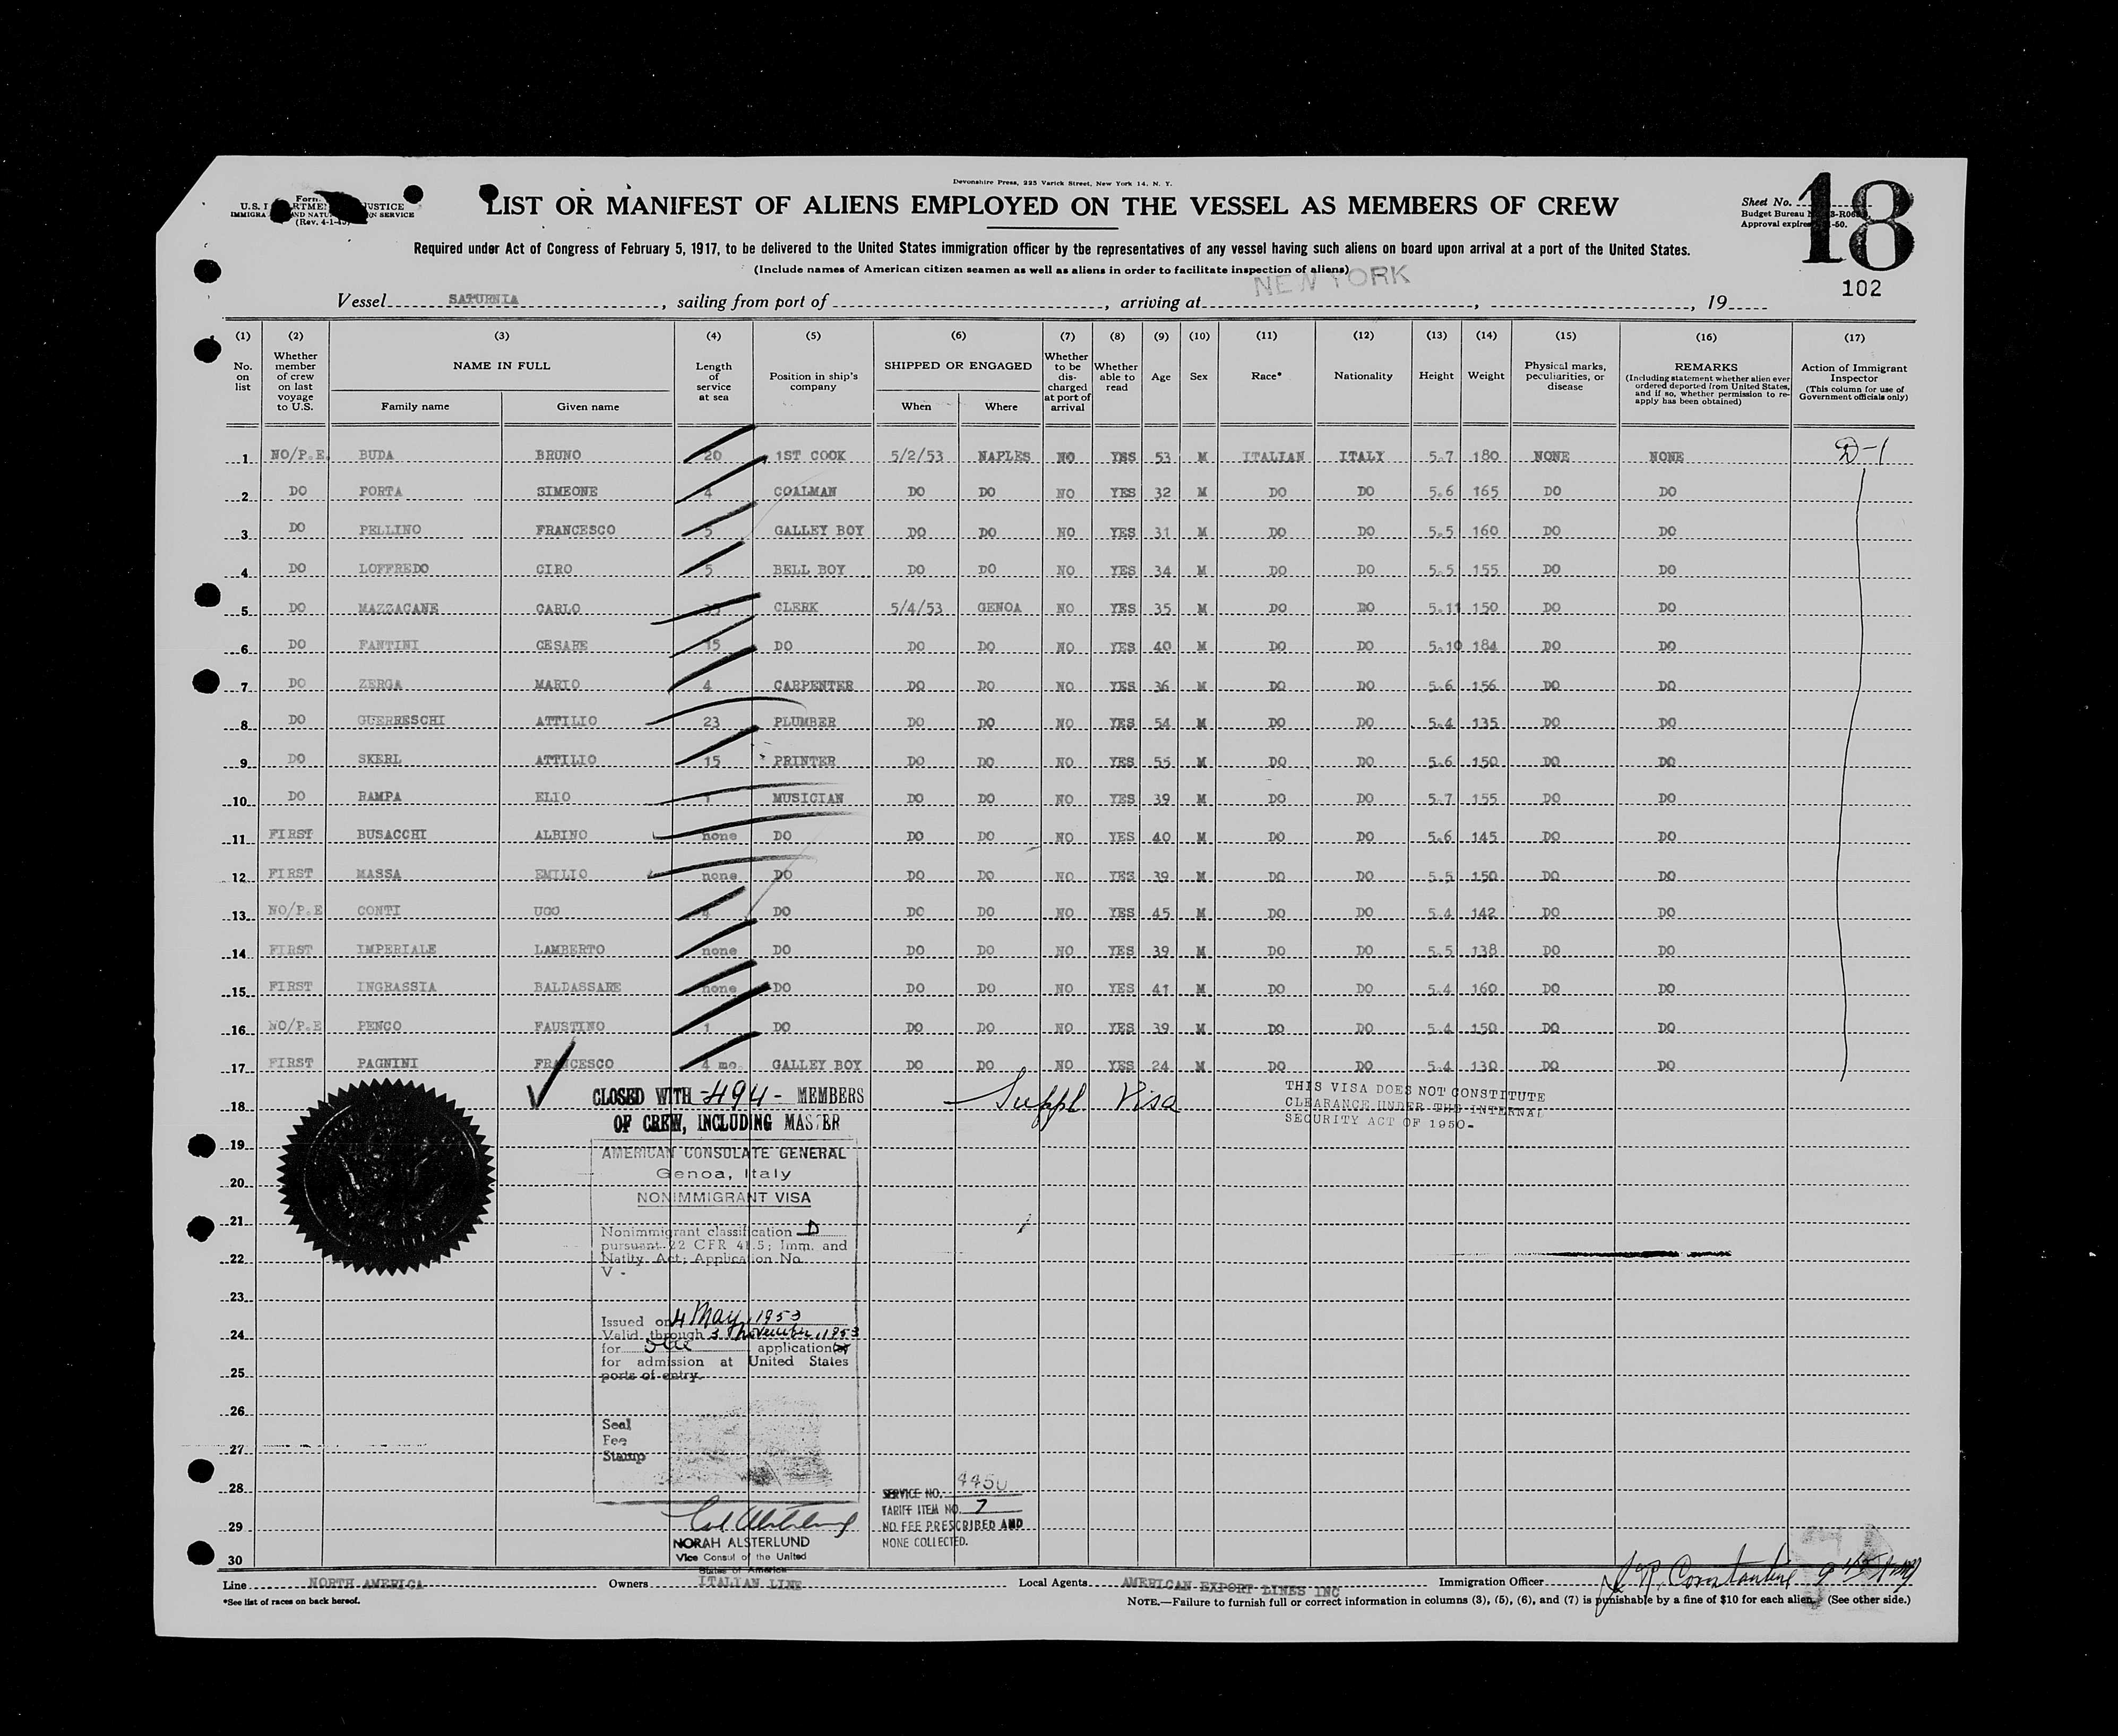 Devonshire Press, 225 Varick Street, New York 14, N. Y.
LIST OR MANIFEST OF ALIENS EMPLOYED ON THE VESSEL AS MEMBERS OF CREW
Required under Act of Congress of February 5, 1917, to be delivered to the United States immigration officer by the representatives of any vessel having such aliens on board upon arrival at a port of the United States.
(Include names of American citizen seamen as well as aliens in order to facilitate inspection of aliens)
Form
U.S. JUSTICE
IMMIGRA AND NATU N SERVICE
(Rev. 4-1-
Sheet No. 18
Budget Bureau
Approval expires -50.
102
Vessel SATURNIA, sailing from port of , arriving at NEW YORK, , 19
(1) (2) (3) (4) (5) (6) (7) (8) (9) (10) (11) (12) (13) (14) (15) (16) (17)
No. on list
Whether member of crew on last voyage to U.S.
NAME IN FULL
Family name Given name
Length of service at sea
Position in ship's company
SHIPPED OR ENGAGED
When Where
Whether to be discharged at port of arrival
Whether able to read
Age
Sex
Race*
Nationality
Height
Weight
Physical marks, peculiarities, or disease
REMARKS
(Including statement whether alien ever ordered deported from United States, and if so, whether permission to re-apply has been obtained)
Action of Immigrant Inspector
(This column for use of Government officials only)
1 NO/P.E. BUDA BRUNO 20 1ST COOK 5/2/53 NAPLES NO YES 53 M ITALIAN ITALY 5.7 180 NONE NONE D-1
2 DO FORTA SIMEONE 4 COALMAN DO DO NO YES 32 M DO DO 5.6 165 DO DO
3 DO PELLINO FRANCESCO 5 GALLEY BOY DO DO NO YES 31 M DO DO 5.5 160 DO DO
4 DO LOFFREDO CIRO 5 BELL BOY DO DO NO YES 34 M DO DO 5.5 155 DO DO
5 DO MAZZACANE CARLO CLERK 5/4/53 GENOA NO YES 35 M DO DO 5.11 150 DO DO
6 DO FANTINI CESARE 15 DO DO DO NO YES 40 M DO DO 5.10 184 DO DO
7 DO ZERGA MARIO 4 CARPENTER DO DO NO YES 36 M DO DO 5.6 156 DO DO
8 DO GUERRESCHI ATTILIO 23 PLUMBER DO DO NO YES 54 M DO DO 5.4 135 DO DO
9 DO SKERL ATTILIO 15 PRINTER DO DO NO YES 55 M DO DO 5.6 150 DO DO
10 DO RAMPA ELIO 1 MUSICIAN DO DO NO YES 39 M DO DO 5.7 155 DO DO
11 FIRST BUSACCHI ALBINO none DO DO DO NO YES 40 M DO DO 5.6 145 DO DO
12 FIRST MASSA EMILIO none DO DO DO NO YES 39 M DO DO 5.5 150 DO DO
13 NO/P.E CONTI UGO DO DO DO NO YES 45 M DO DO 5.4 142 DO DO
14 FIRST IMPERIALE LAMBERTO none DO DO DO NO YES 39 M DO DO 5.5 138 DO DO
15 FIRST INGRASSIA BALDASSARE none DO DO DO NO YES 41 M DO DO 5.4 160 DO DO
16 NO/P.E PENCO FAUSTINO 1 DO DO DO NO YES 39 M DO DO 5.4 150 DO DO
17 FIRST PAGNINI FRANCESCO 4 mo. GALLEY BOY DO DO NO YES 24 M DO DO 5.4 130 DO DO
18
19
20
21
22
23
24
25
26
27
28
29
30
CLOSED WITH -494- MEMBERS
OF CREW, INCLUDING MASTER
Suppl Visa
THIS VISA DOES NOT CONSTITUTE
CLEARANCE UNDER THE INTERNAL
SECURITY ACT OF 1950-
AMERICAN CONSULATE GENERAL
Genoa, Italy
NONIMMIGRANT VISA
Nonimmigrant classification D
pursuant 22 CFR 41.5; Imm. and
Natlty. Act; Application No.
V -
Issued on 4 May, 1953
Valid through 3 November, 1953
for one application
for admission at United States
ports of entry.
Seal
Fee
Stamp
NORAH ALSTERLUND
Vice Consul of the United
States of America
SERVICE NO. 4450
TARIFF ITEM NO. 7
NO FEE PRESCRIBED AND
NONE COLLECTED.
Line NORTH AMERICA Owners ITALIAN LINE Local Agents AMERICAN EXPORT LINES INC Immigration Officer
*See list of races on back hereof.
NOTE.—Failure to furnish full or correct information in columns (3), (5), (6), and (7) is punishable by a fine of $10 for each alien. (See other side.)